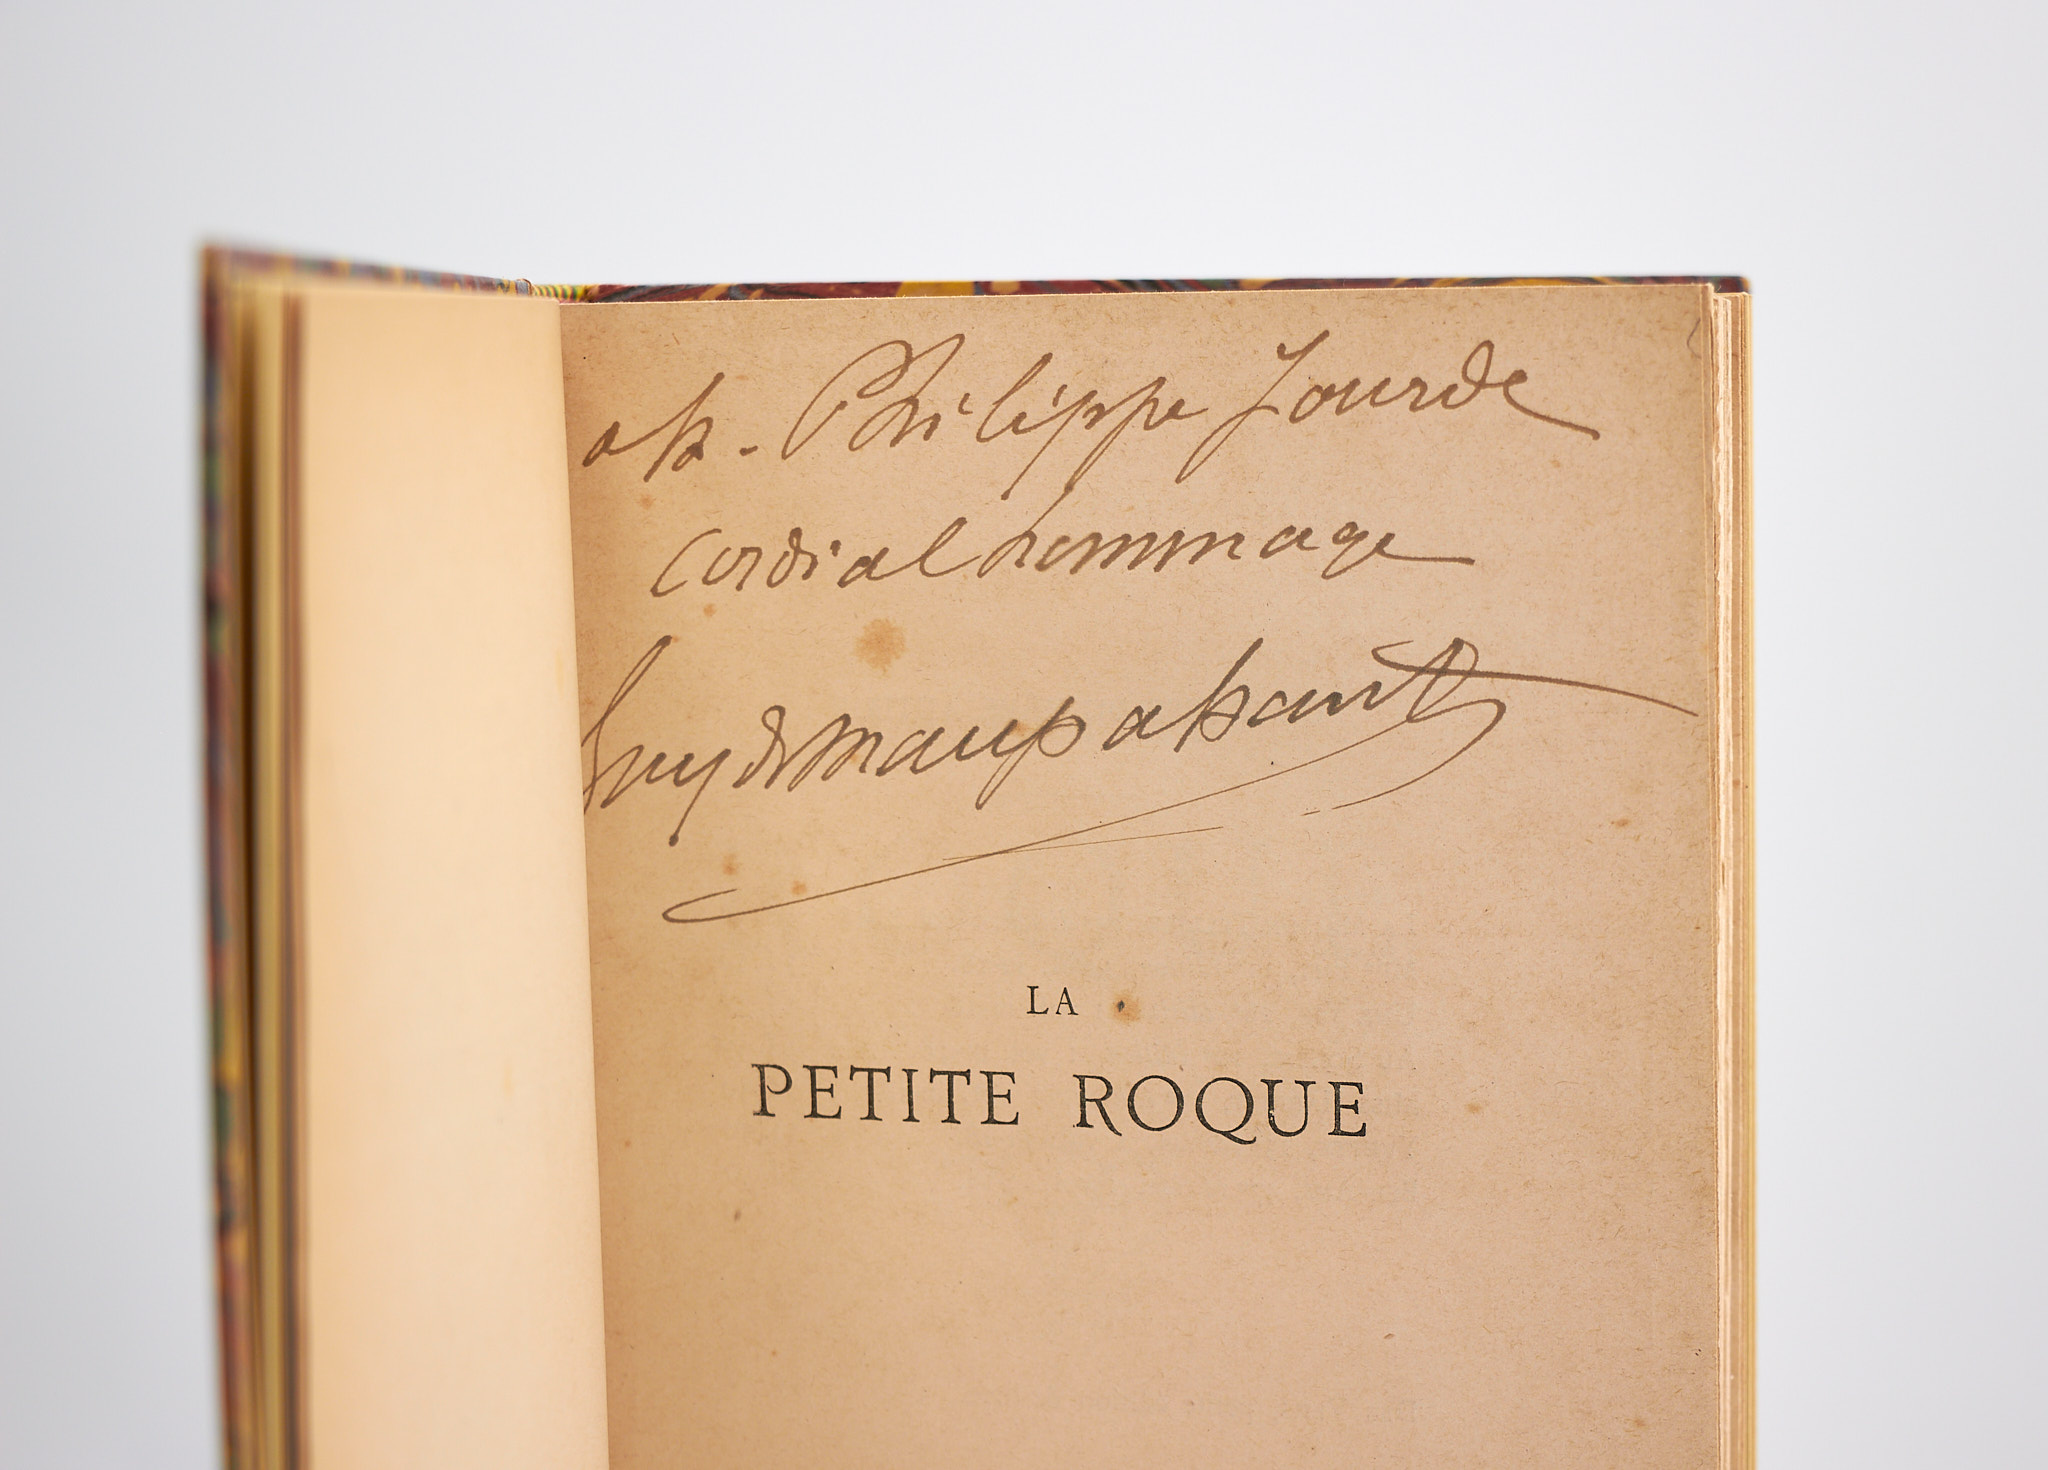 à M. Philippe Jourde
cordial hommage
Guy de Maupassant
LA
PETITE ROQUE